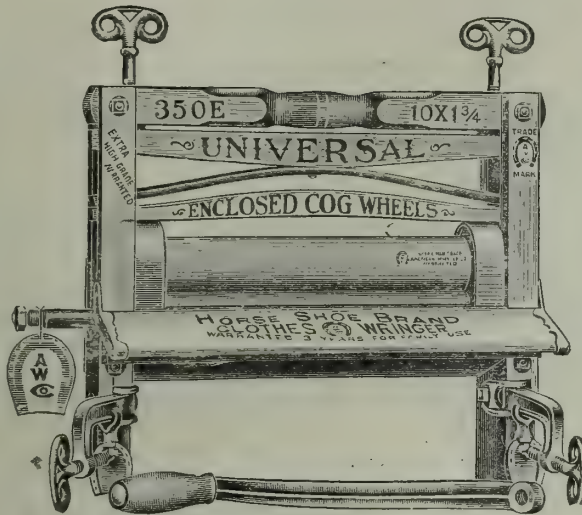 350E 10X1¾
EXTRA
HIGH GRADE
WARRANTED
UNIVERSAL
TRADE
MARK
ENCLOSED COG WHEELS
HORSE SHOE BRAND
CLOTHES WRINGER
WARRANTED 3 YEARS FOR FAMILY USE
A
W
Co